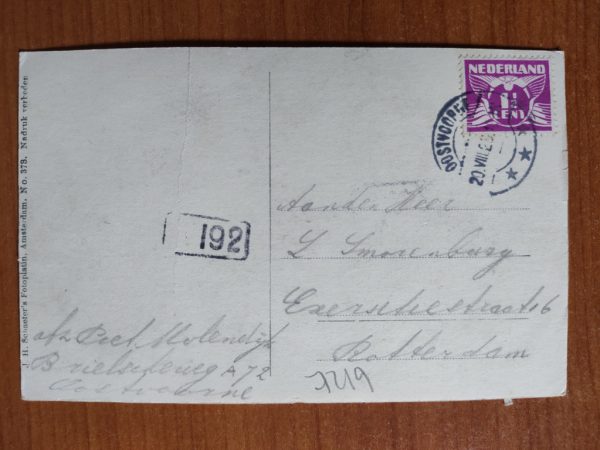 J. H. Schaefer's Fotoplatin, Amsterdam. No. 378. Nadruk verboden
NEDERLAND
1½
CENT
OOSTVOORNE
20.VIII.2
192
Aan den Heer
L Smorenburg
straat 6
Rotterdam
afz Piet Molendijk
Brielscheweg A 72
Oostvoorne
7219